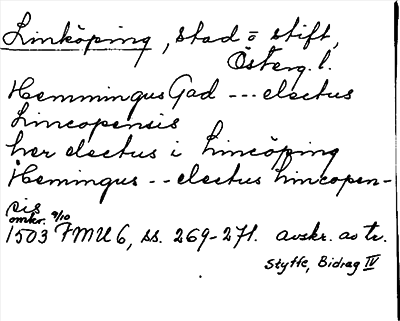 Linköping, stad o stift,
Österg. l.
Hemmingus Gad --- electus
Lincopensis
her electus i Lincöping
Hemingus -- electus Lincopen-
sis
omkr. 9/10
1503 FMU 6, ss. 269-271. avskr. av tr.
Styffe, Bidrag IV